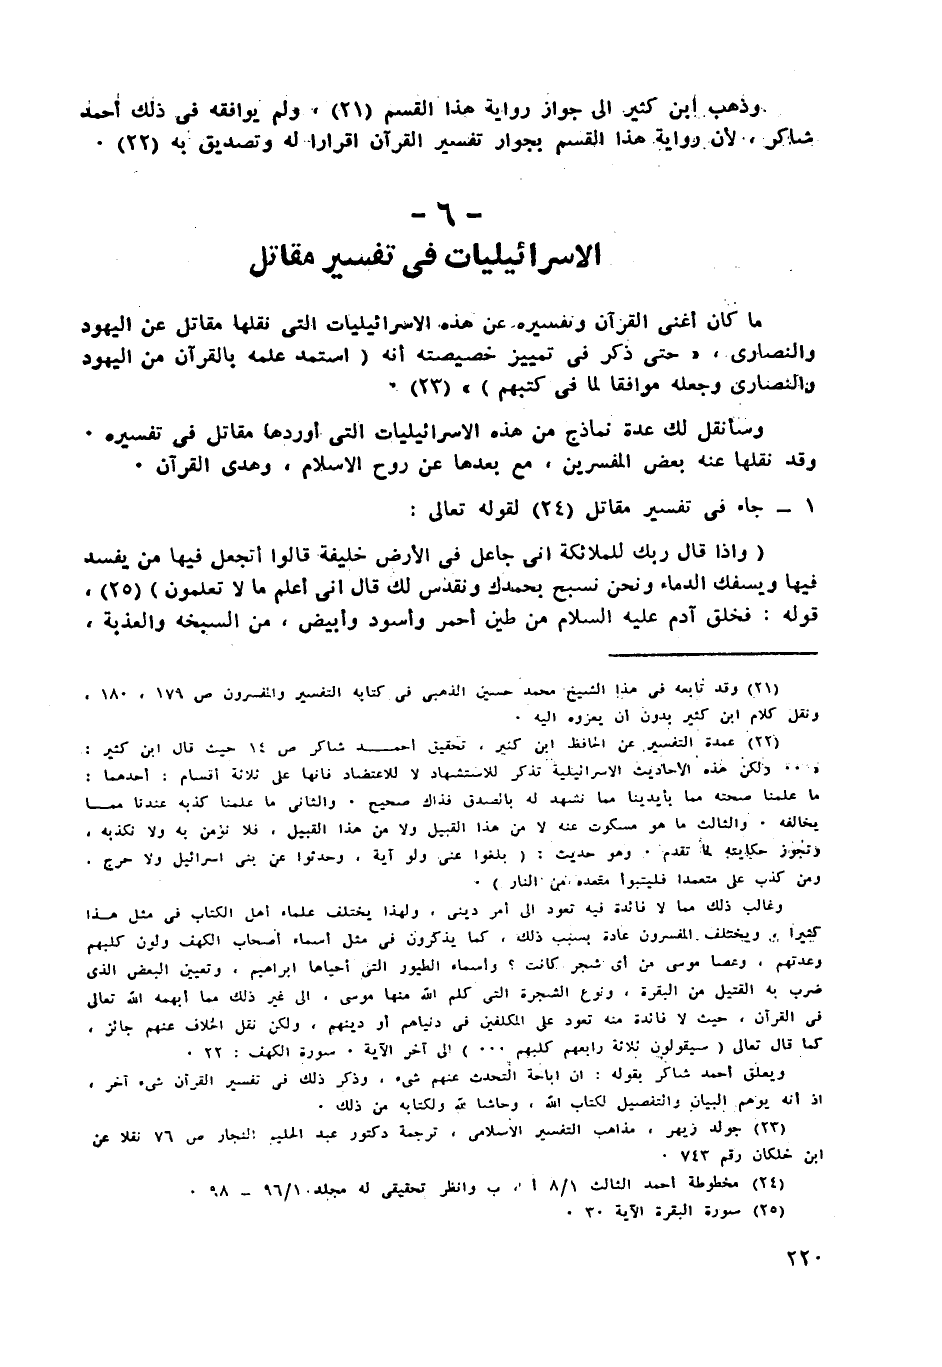 وذهب ابن كثير الى جواز رواية هذا القسم (٢١) ، ولم يوافقه فى ذلك أحمد
شاكر ، لأن رواية هذا القسم بجوار تفسير القرآن اقرارا له وتصديق به (٢٢) ٠
— ٦ —
الاسرائيليات فى تفسير مقاتل
ما كان أغنى القرآن وتفسيره عن هذه الاسرائيليات التى نقلها مقاتل عن اليهود
والنصارى ، « حتى ذكر فى تمييز خصيصته أنه ( استمد علمه بالقرآن من اليهود
والنصارى وجعله موافقا لما فى كتبهم ) » (٢٣) ٠
وسأنقل لك عدة نماذج من هذه الاسرائيليات التى أوردها مقاتل فى تفسيره ٠
وقد نقلها عنه بعض المفسرين ، مع بعدها عن روح الاسلام ، وهدى القرآن ٠
١ — جاء فى تفسير مقاتل (٢٤) لقوله تعالى :
( واذا قال ربك للملائكة انى جاعل فى الأرض خليفة قالوا أتجعل فيها من يفسد
فيها ويسفك الدماء ونحن نسبح بحمدك ونقدس لك قال انى أعلم ما لا تعلمون ) (٢٥) ،
قوله : فخلق آدم عليه السلام من طين أحمر وأسود وأبيض ، من السبخه والعذبة ،
(٢١) وقد تابعه فى هذا الشيخ محمد حسين الذهبى فى كتابه التفسير والمفسرون ص ١٧٩ ، ١٨٠ ،
ونقل كلام ابن كثير بدون أن يعزوه اليه ٠
(٢٢) عمدة التفسير عن الحافظ ابن كثير ، تحقيق أحمـــد شاكر ص ١٤ حيث قال ابن كثير :
« ٠٠ ولكن هذه الأحاديث الاسرائيلية تذكر للاستشهاد لا للاعتضاد فانها على ثلاثة أقسام : أحدهما :
ما علمنا صحته مما بأيدينا مما نشهد له بالصدق فذاك صحيح ٠ والثانى ما علمنا كذبه عندنا ممـــا
يخالفه ٠ والثالث ما هو مسكوت عنه لا من هذا القبيل ولا من هذا القبيل ، فلا نؤمن به ولا نكذبه ،
وتجوز حكايته لما تقدم ٠ وهو حديث : ( بلغوا عنى ولو آية ، وحدثوا عن بنى اسرائيل ولا حرج ٠
ومن كذب على متعمدا فليتبوأ مقعده من النار ) ٠
وغالب ذلك مما لا فائدة فيه تعود الى أمر دينى ، ولهذا يختلف علماء أهل الكتاب فى مثل هــذا
كثيرا ، ويختلف المفسرون عادة بسبب ذلك ، كما يذكرون فى مثل أسماء أصحاب الكهف ولون كلبهم
وعدتهم ، وعصا موسى من أى شجر كانت ؟ وأسماء الطيور التى أحياها ابراهيم ، وتعيين البعض الذى
ضرب به القتيل من البقرة ، ونوع الشجرة التى كلم الله منها موسى ، الى غير ذلك مما أبهمه الله تعالى
فى القرآن ، حيث لا فائدة منه تعود على المكلفين فى دنياهم أو دينهم ، ولكن نقل الخلاف عنهم جائز ،
كما قال تعالى ( سيقولون ثلاثة رابعهم كلبهم ٠٠٠ ) الى آخر الآية ٠ سورة الكهف : ٢٢ ٠
ويعلق أحمد شاكر بقوله : ان اباحة التحدث عنهم شىء ، وذكر ذلك فى تفسير القرآن شىء آخر ،
اذ أنه يوهم البيان والتفصيل لكتاب الله ، وحاشا لله ولكتابه من ذلك ٠
(٢٣) جولد زيهر ، مذاهب التفسير الاسلامى ، ترجمة دكتور عبد الحليم النجار ص ٧٦ نقلا عن
ابن خلكان رقم ٧٤٣ ٠
(٢٤) مخطوطة أحمد الثالث ٨/١ أ ، ب وانظر تحقيقى له مجلد ٩٦/١٠ — ٩٨ ٠
(٢٥) سورة البقرة الآية ٣٠ ٠
٢٢٠